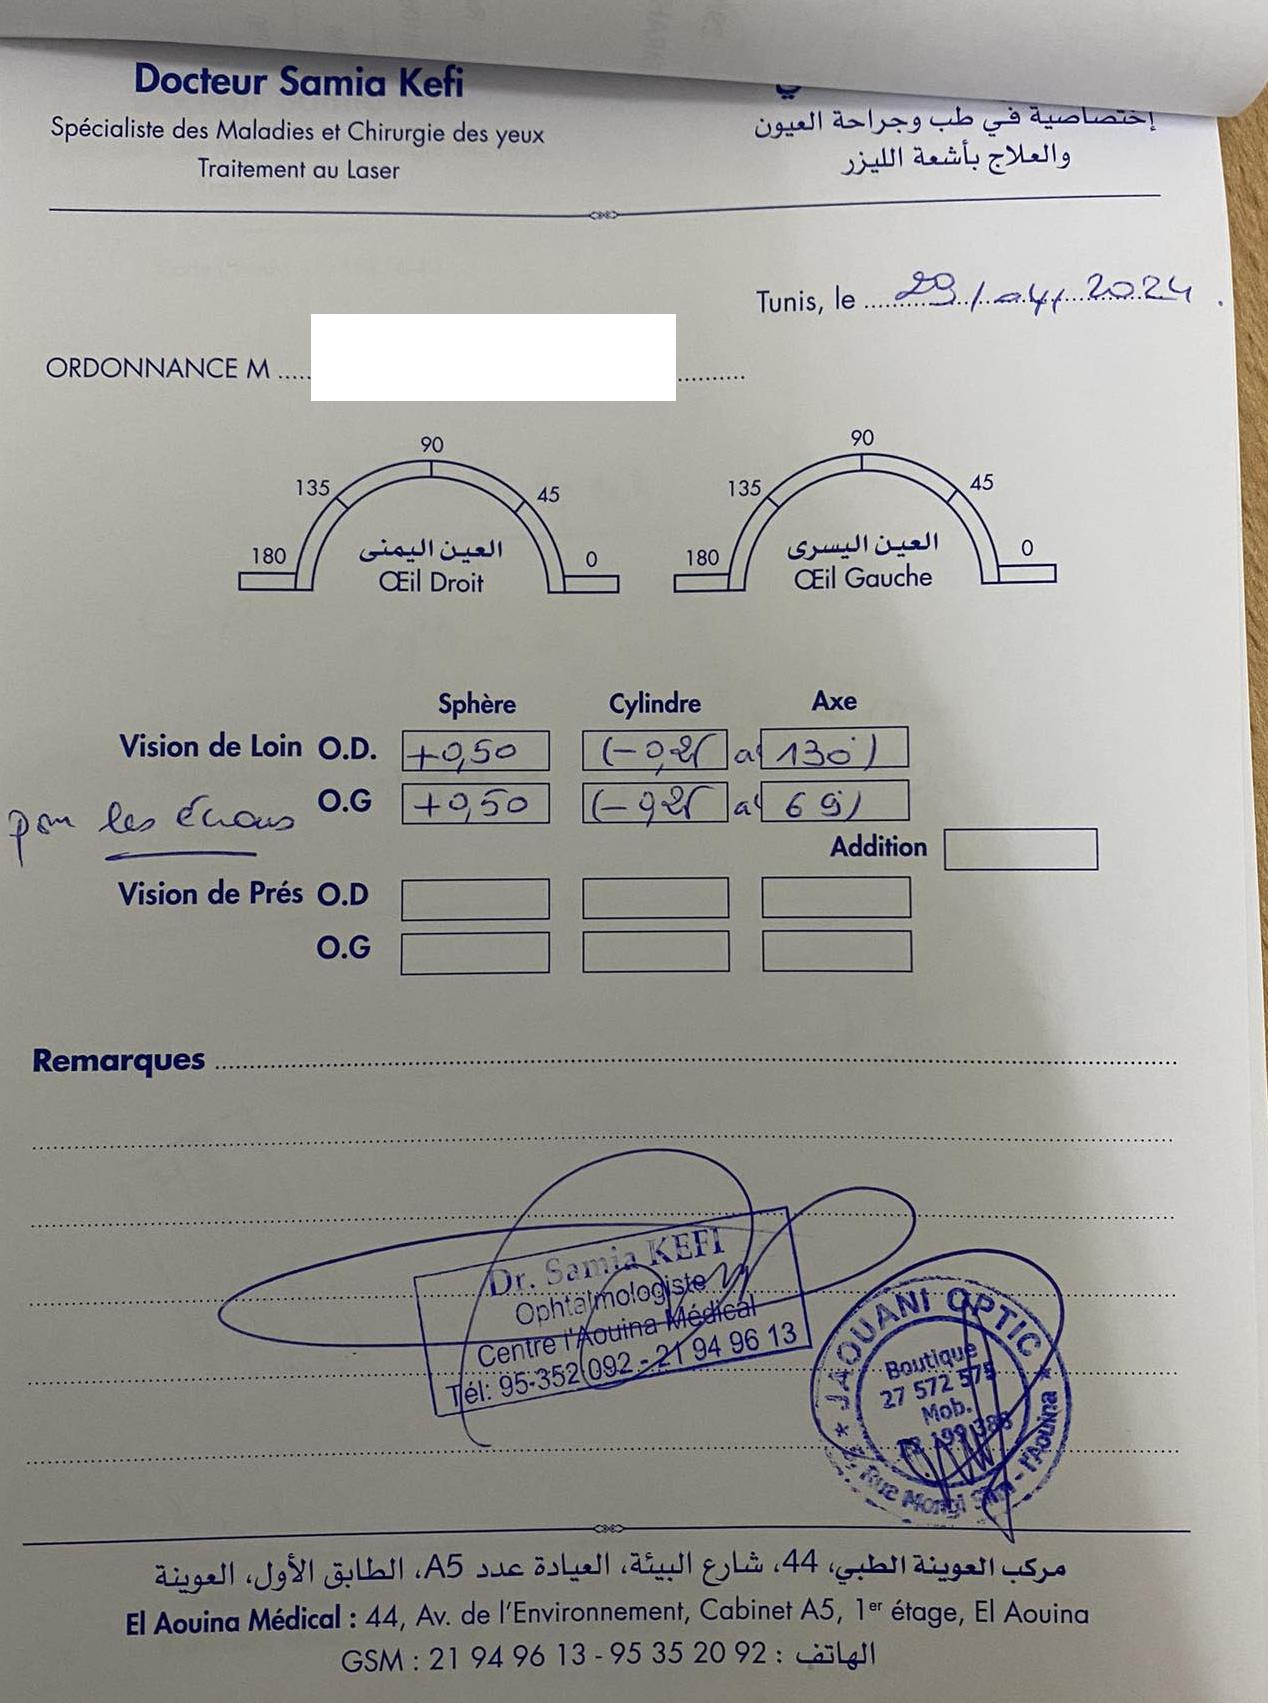 Docteur Samia Kefi
Spécialiste des Maladies et Chirurgie des yeux
Traitement au Laser
إختصاصية في طب وجراحة العيون
والعلاج بأشعة الليزر
Tunis, le 29/04/2024.
ORDONNANCE M
90
135 45
180 العين اليمنى 0
Œil Droit
90
135 45
180 العين اليسرى 0
Œil Gauche
Sphère Cylindre Axe
Vision de Loin O.D. +0,50 (-0,25 à 130°)
O.G +0,50 (-0,25 à 69)
pour les écrans
Addition
Vision de Prés O.D
O.G
Remarques
Dr. Samia KEFI
Ophtalmologiste
Centre l'Aouina Médical
Tél: 95-352 092 - 21 94 96 13
JAOUANI OPTIC
Boutique
27 572 575
Mob.
Rue Mongi Slim - l'Aouina
مركب العوينة الطبي، 44، شارع البيئة، العيادة عدد A5، الطابق الأول، العوينة
El Aouina Médical : 44, Av. de l'Environnement, Cabinet A5, 1er étage, El Aouina
GSM : 21 94 96 13 - 95 35 20 92 : الهاتف